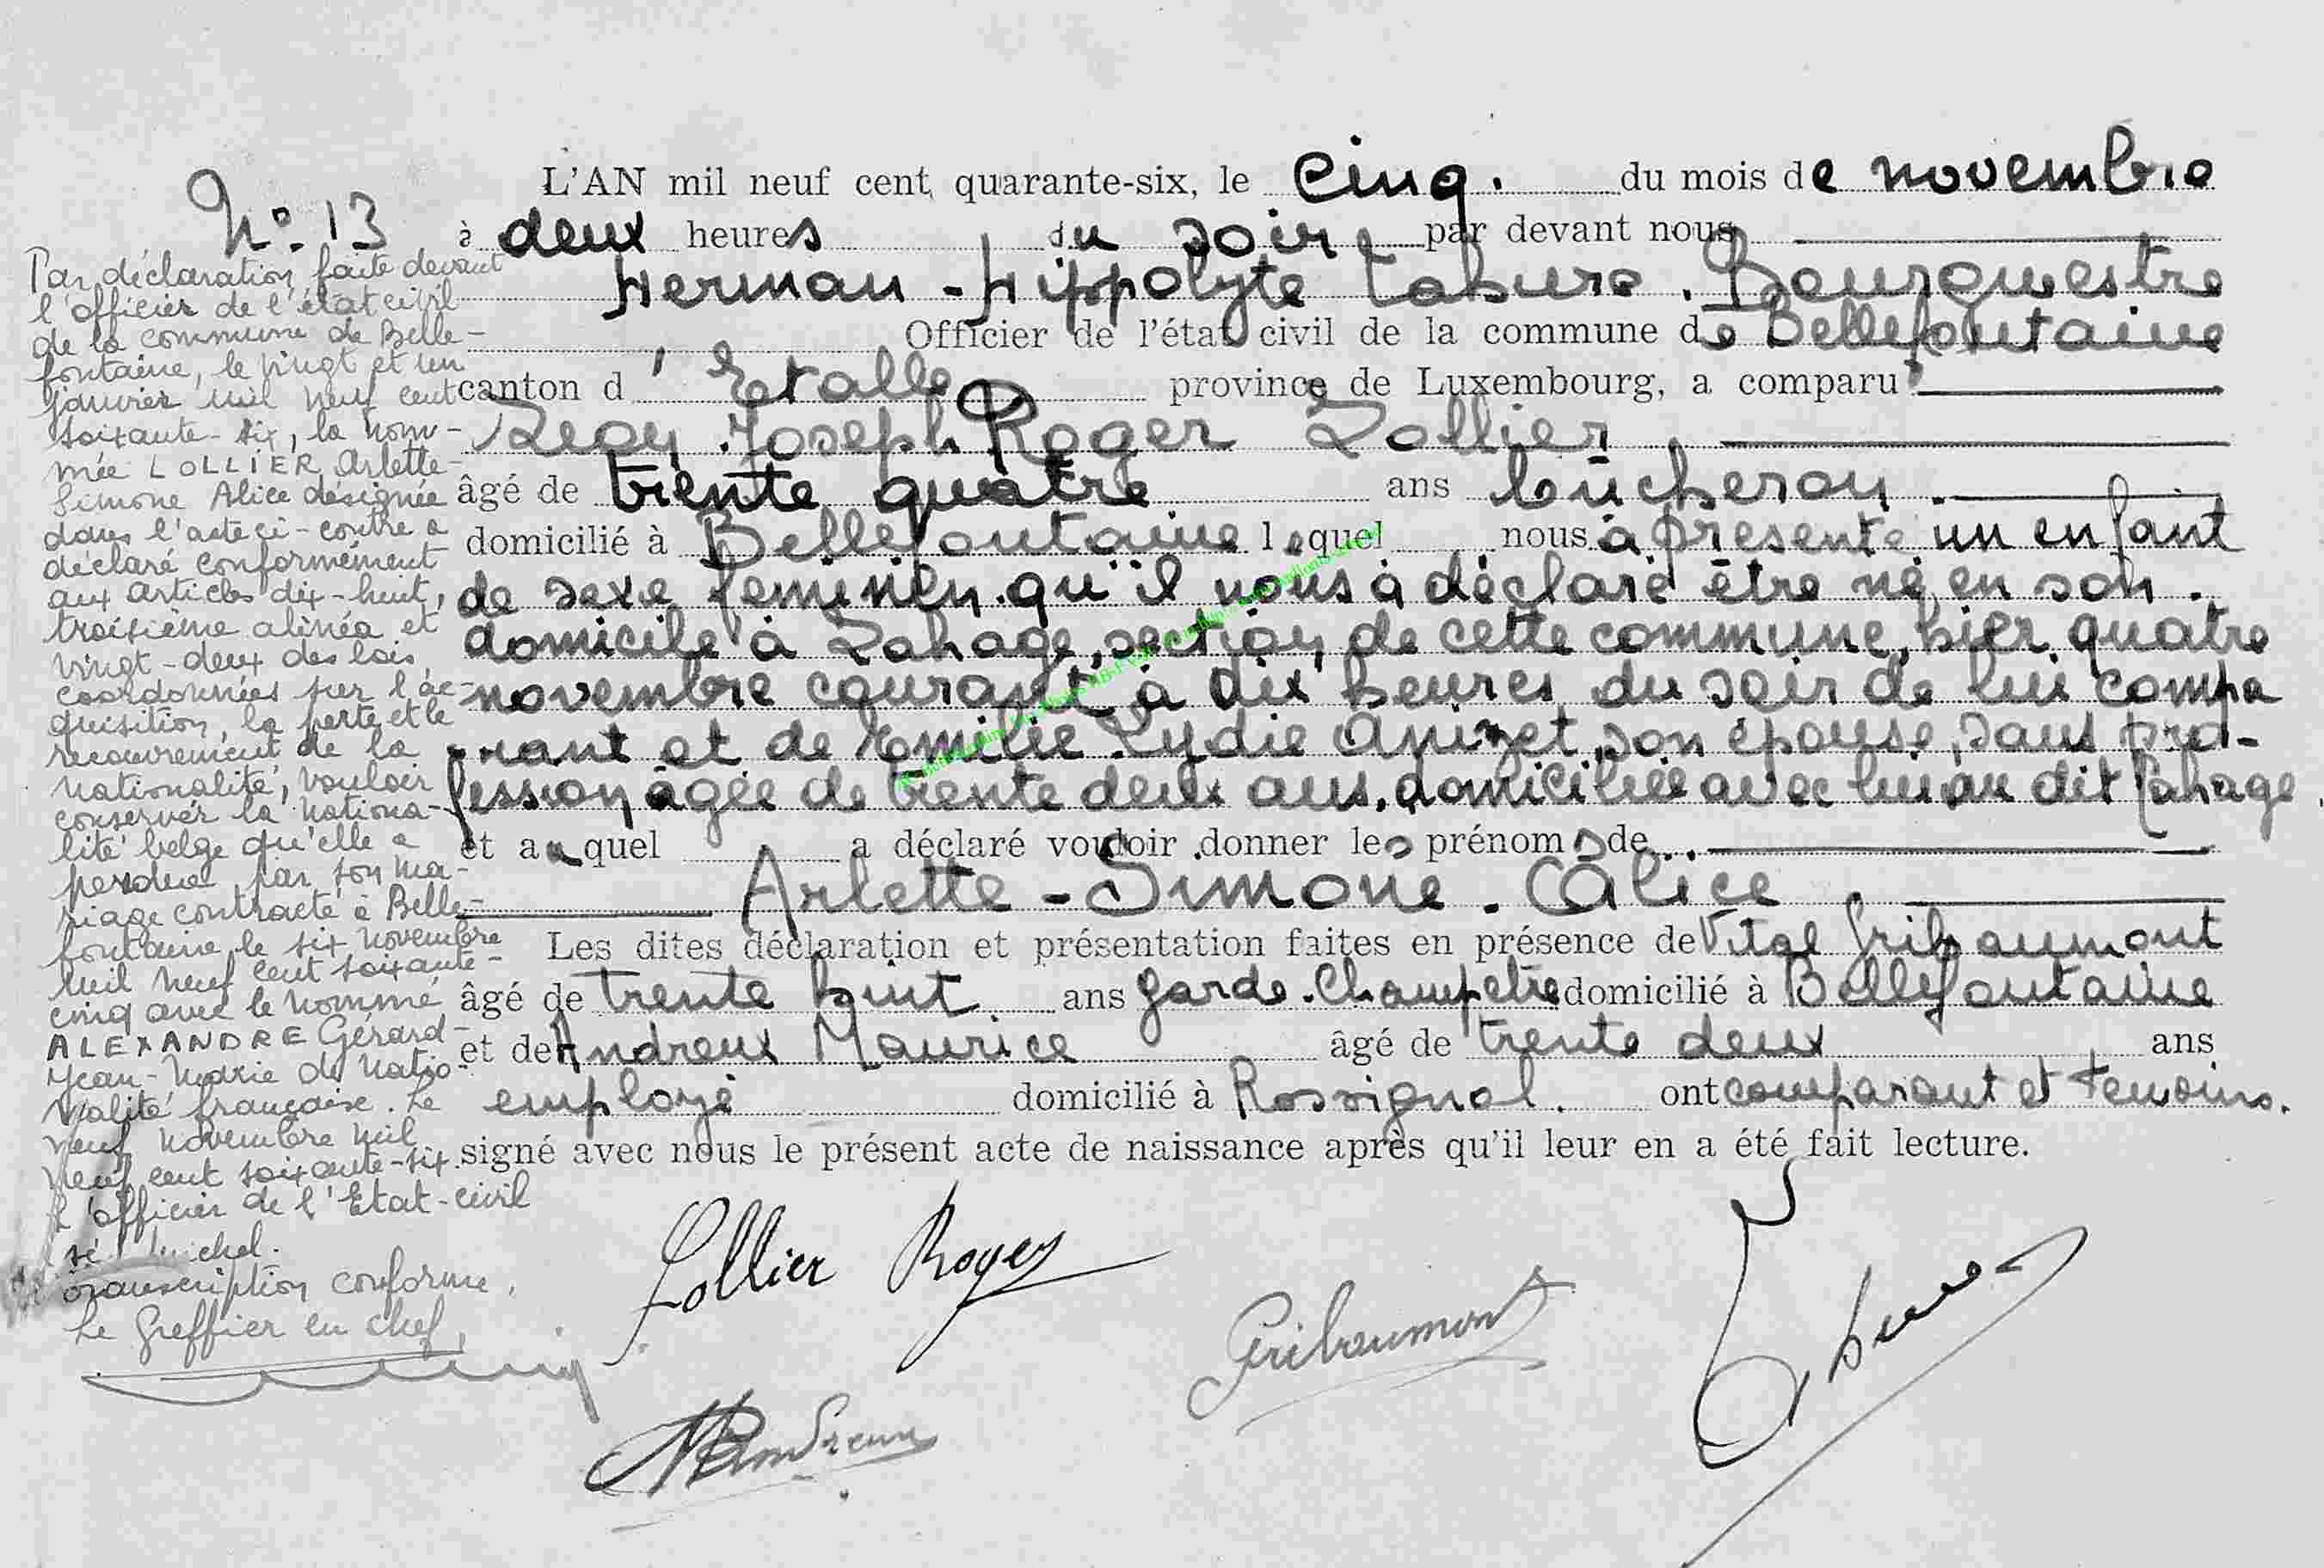 N° 13
Par déclaration faite devant
l'officier de l'état civil
de la commune de Belle-
fontaine, le vingt et un
janvier mil neuf cent
soixante-six, la nom-
mée LOLLIER Arlette-
Simone Alice désignée
dans l'acte ci-contre a
déclaré conformément
aux articles dix-huit,
troisième alinéa et
vingt-deux des lois
coordonnées sur l'ac-
quisition, la perte et le
recouvrement de la
nationalité, vouloir
conserver la nationa-
lité belge qu'elle a
perdue par son ma-
riage contracté à Belle-
fontaine le six novembre
mil neuf cent soixante-
cinq avec le nommé
ALEXANDRE Gérard-
Jean-Marie de natio-
nalité française. Le
neuf novembre mil
neuf cent soixante-six.
L'officier de l'Etat-civil
sé Michel.
transcription conforme,
Le Greffier en chef,
L'AN mil neuf cent quarante-six, le cinq. du mois de novembre
à deux heures du soir, par devant nous
Herman-Hippolyte . Bourgmestre
Officier de l'état civil de la commune de Bellefontaine
canton d'Etalle province de Luxembourg, a comparu
Leon Joseph Roger Lollier
âgé de trente quatre ans bûcheron.
domicilié à Bellefontaine lequel nous à présenté un enfant
de sexe feminin. qu'il nous à déclaré être né en son.
domicile à Lahage, section de cette commune, hier quatre
novembre courant à dix heures du soir de lui compa
rant et de Emilie Lydie Apizet, son épouse, sans pro-
fession agée de trente deux ans, domiciliée avec lui au dit Lahage
et auquel a déclaré vouloir donner les prénoms de
Arlette-Simone-Alice
Les dites déclaration et présentation faites en présence de Vital Gribaumont
âgé de trente huit ans garde-Champetre domicilié à Bellefontaine
et de Andreux Maurice âgé de trente deux ans
employé domicilié à Rossignol. ont comparant et temoins.
signé avec nous le présent acte de naissance après qu'il leur en a été fait lecture.
Lollier Roger
Gribaumont
MAndreux